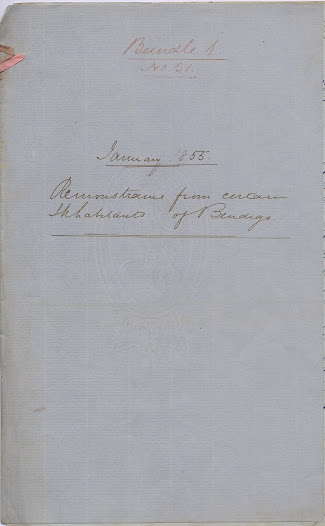 Bundle
No 21.
January 1855.
Remonstrance from certain
Inhabitants of Bendigo